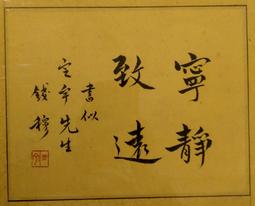 寧靜
致遠
書似
定年先生
錢穆